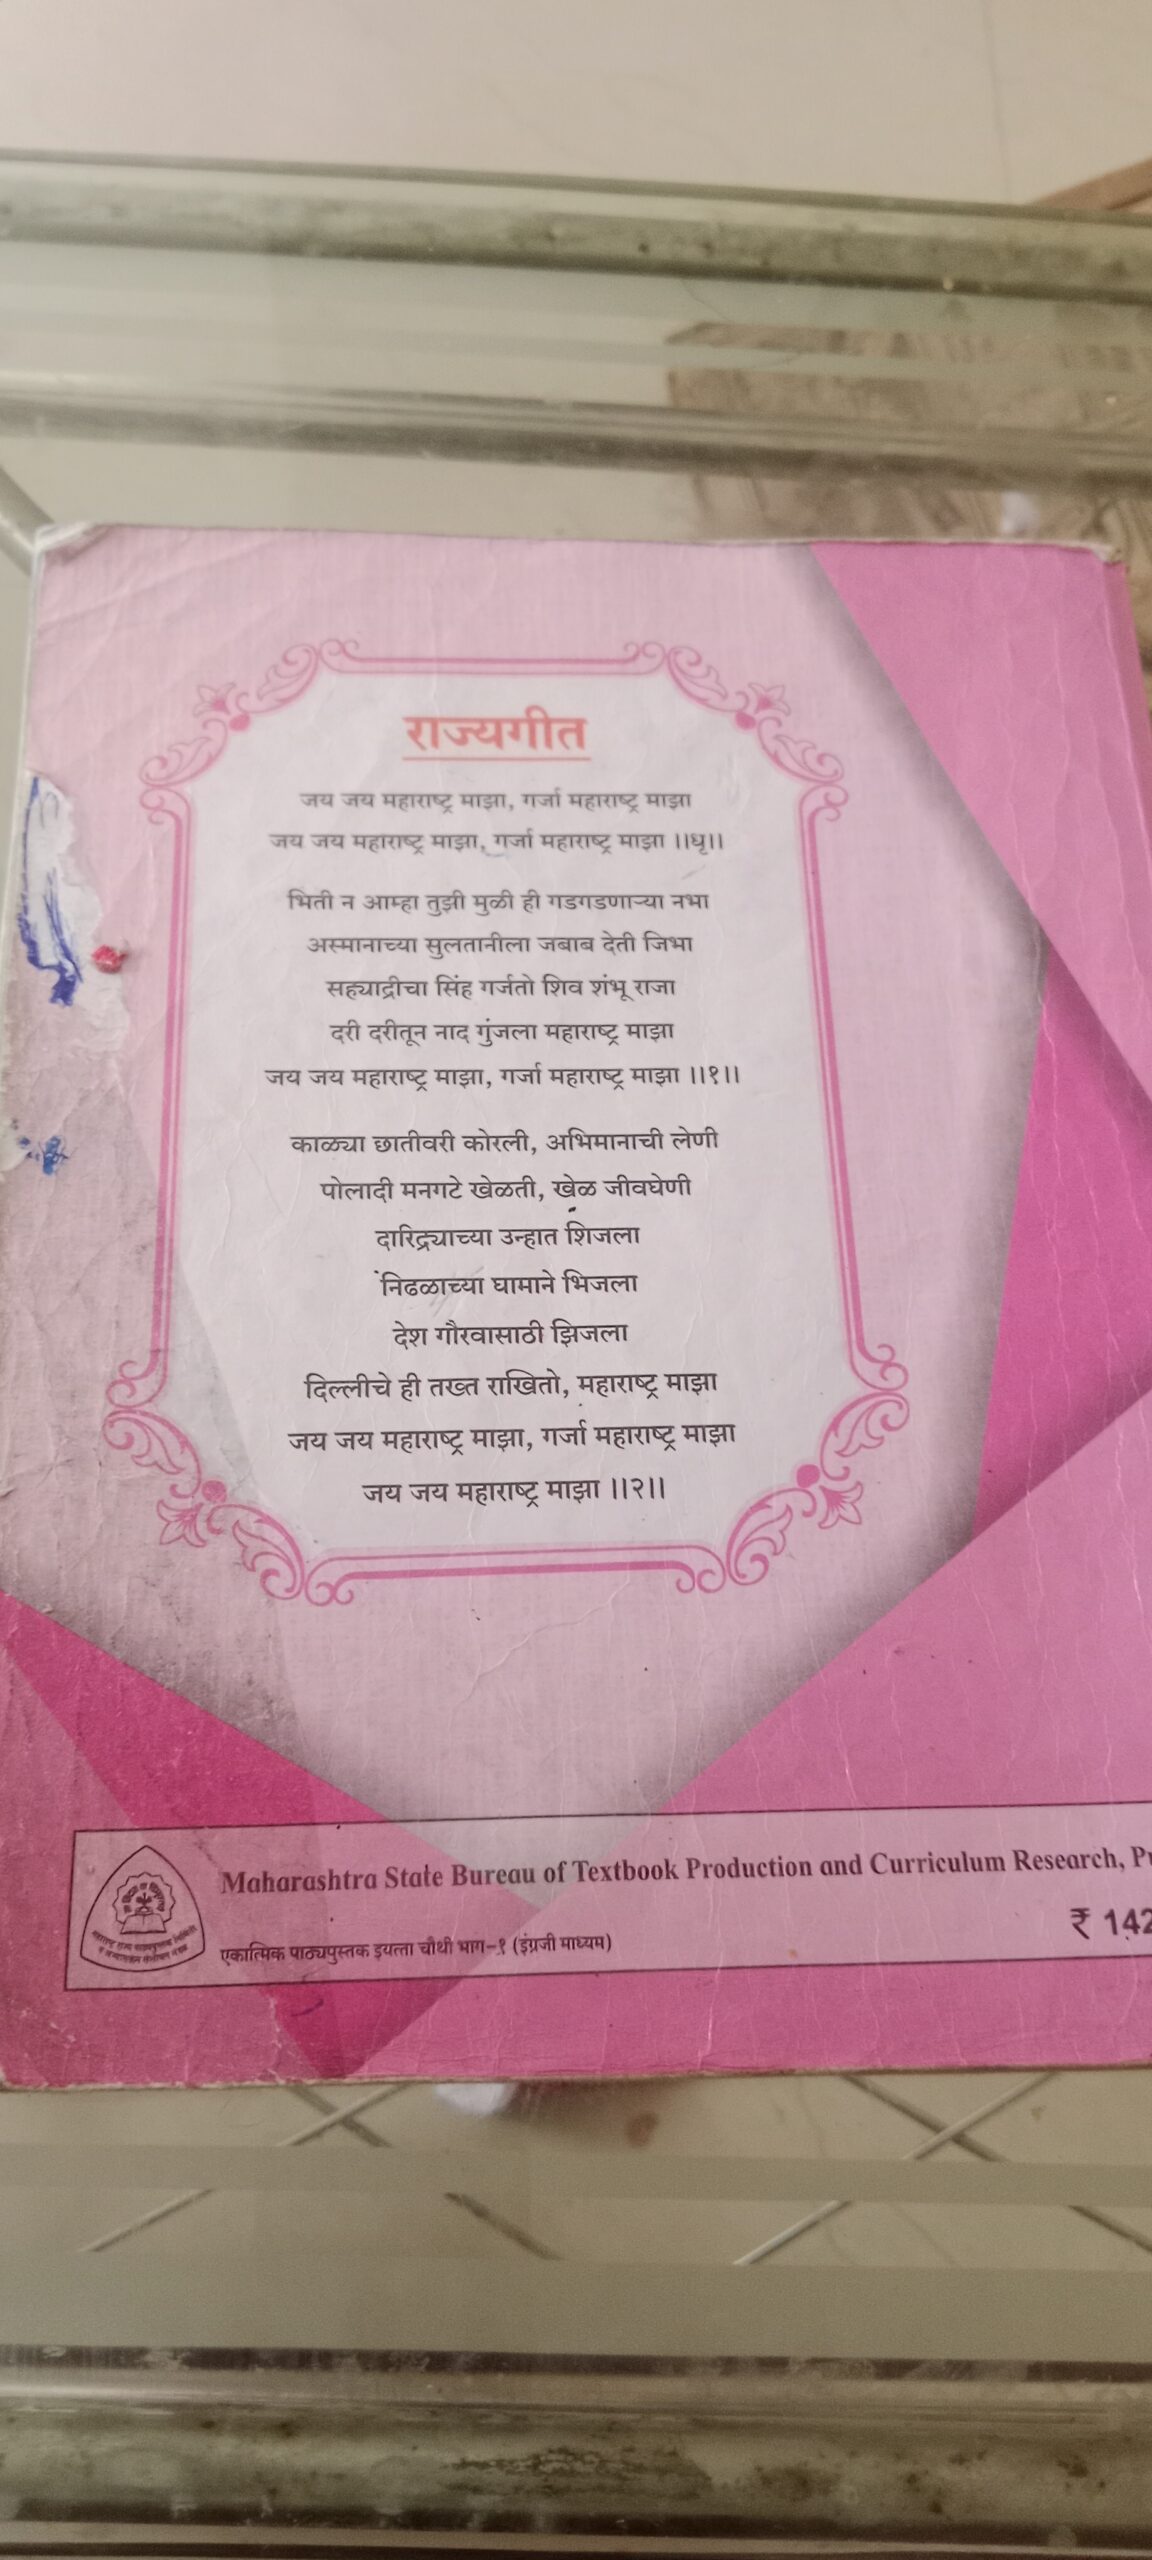 राज्यगीत
जय जय महाराष्ट्र माझा, गर्जा महाराष्ट्र माझा
जय जय महाराष्ट्र माझा, गर्जा महाराष्ट्र माझा ।।धृ।।
भिती न आम्हा तुझी मुळी ही गडगडणाऱ्या नभा
अस्मानाच्या सुलतानीला जबाब देती जिभा
सह्याद्रीचा सिंह गर्जतो शिव शंभू राजा
दरी दरीतून नाद गुंजला महाराष्ट्र माझा
जय जय महाराष्ट्र माझा, गर्जा महाराष्ट्र माझा ।।१।।
काळ्या छातीवरी कोरली, अभिमानाची लेणी
पोलादी मनगटे खेळती, खेळ जीवघेणी
दारिद्र्याच्या उन्हात शिजला
निढळाच्या घामाने भिजला
देश गौरवासाठी झिजला
दिल्लीचे ही तख्त राखितो, महाराष्ट्र माझा
जय जय महाराष्ट्र माझा, गर्जा महाराष्ट्र माझा
जय जय महाराष्ट्र माझा ।।२।।
Maharashtra State Bureau of Textbook Production and Curriculum Research,
₹ 142
एकात्मिक पाठ्यपुस्तक इयत्ता चौथी भाग-१ (इंग्रजी माध्यम)